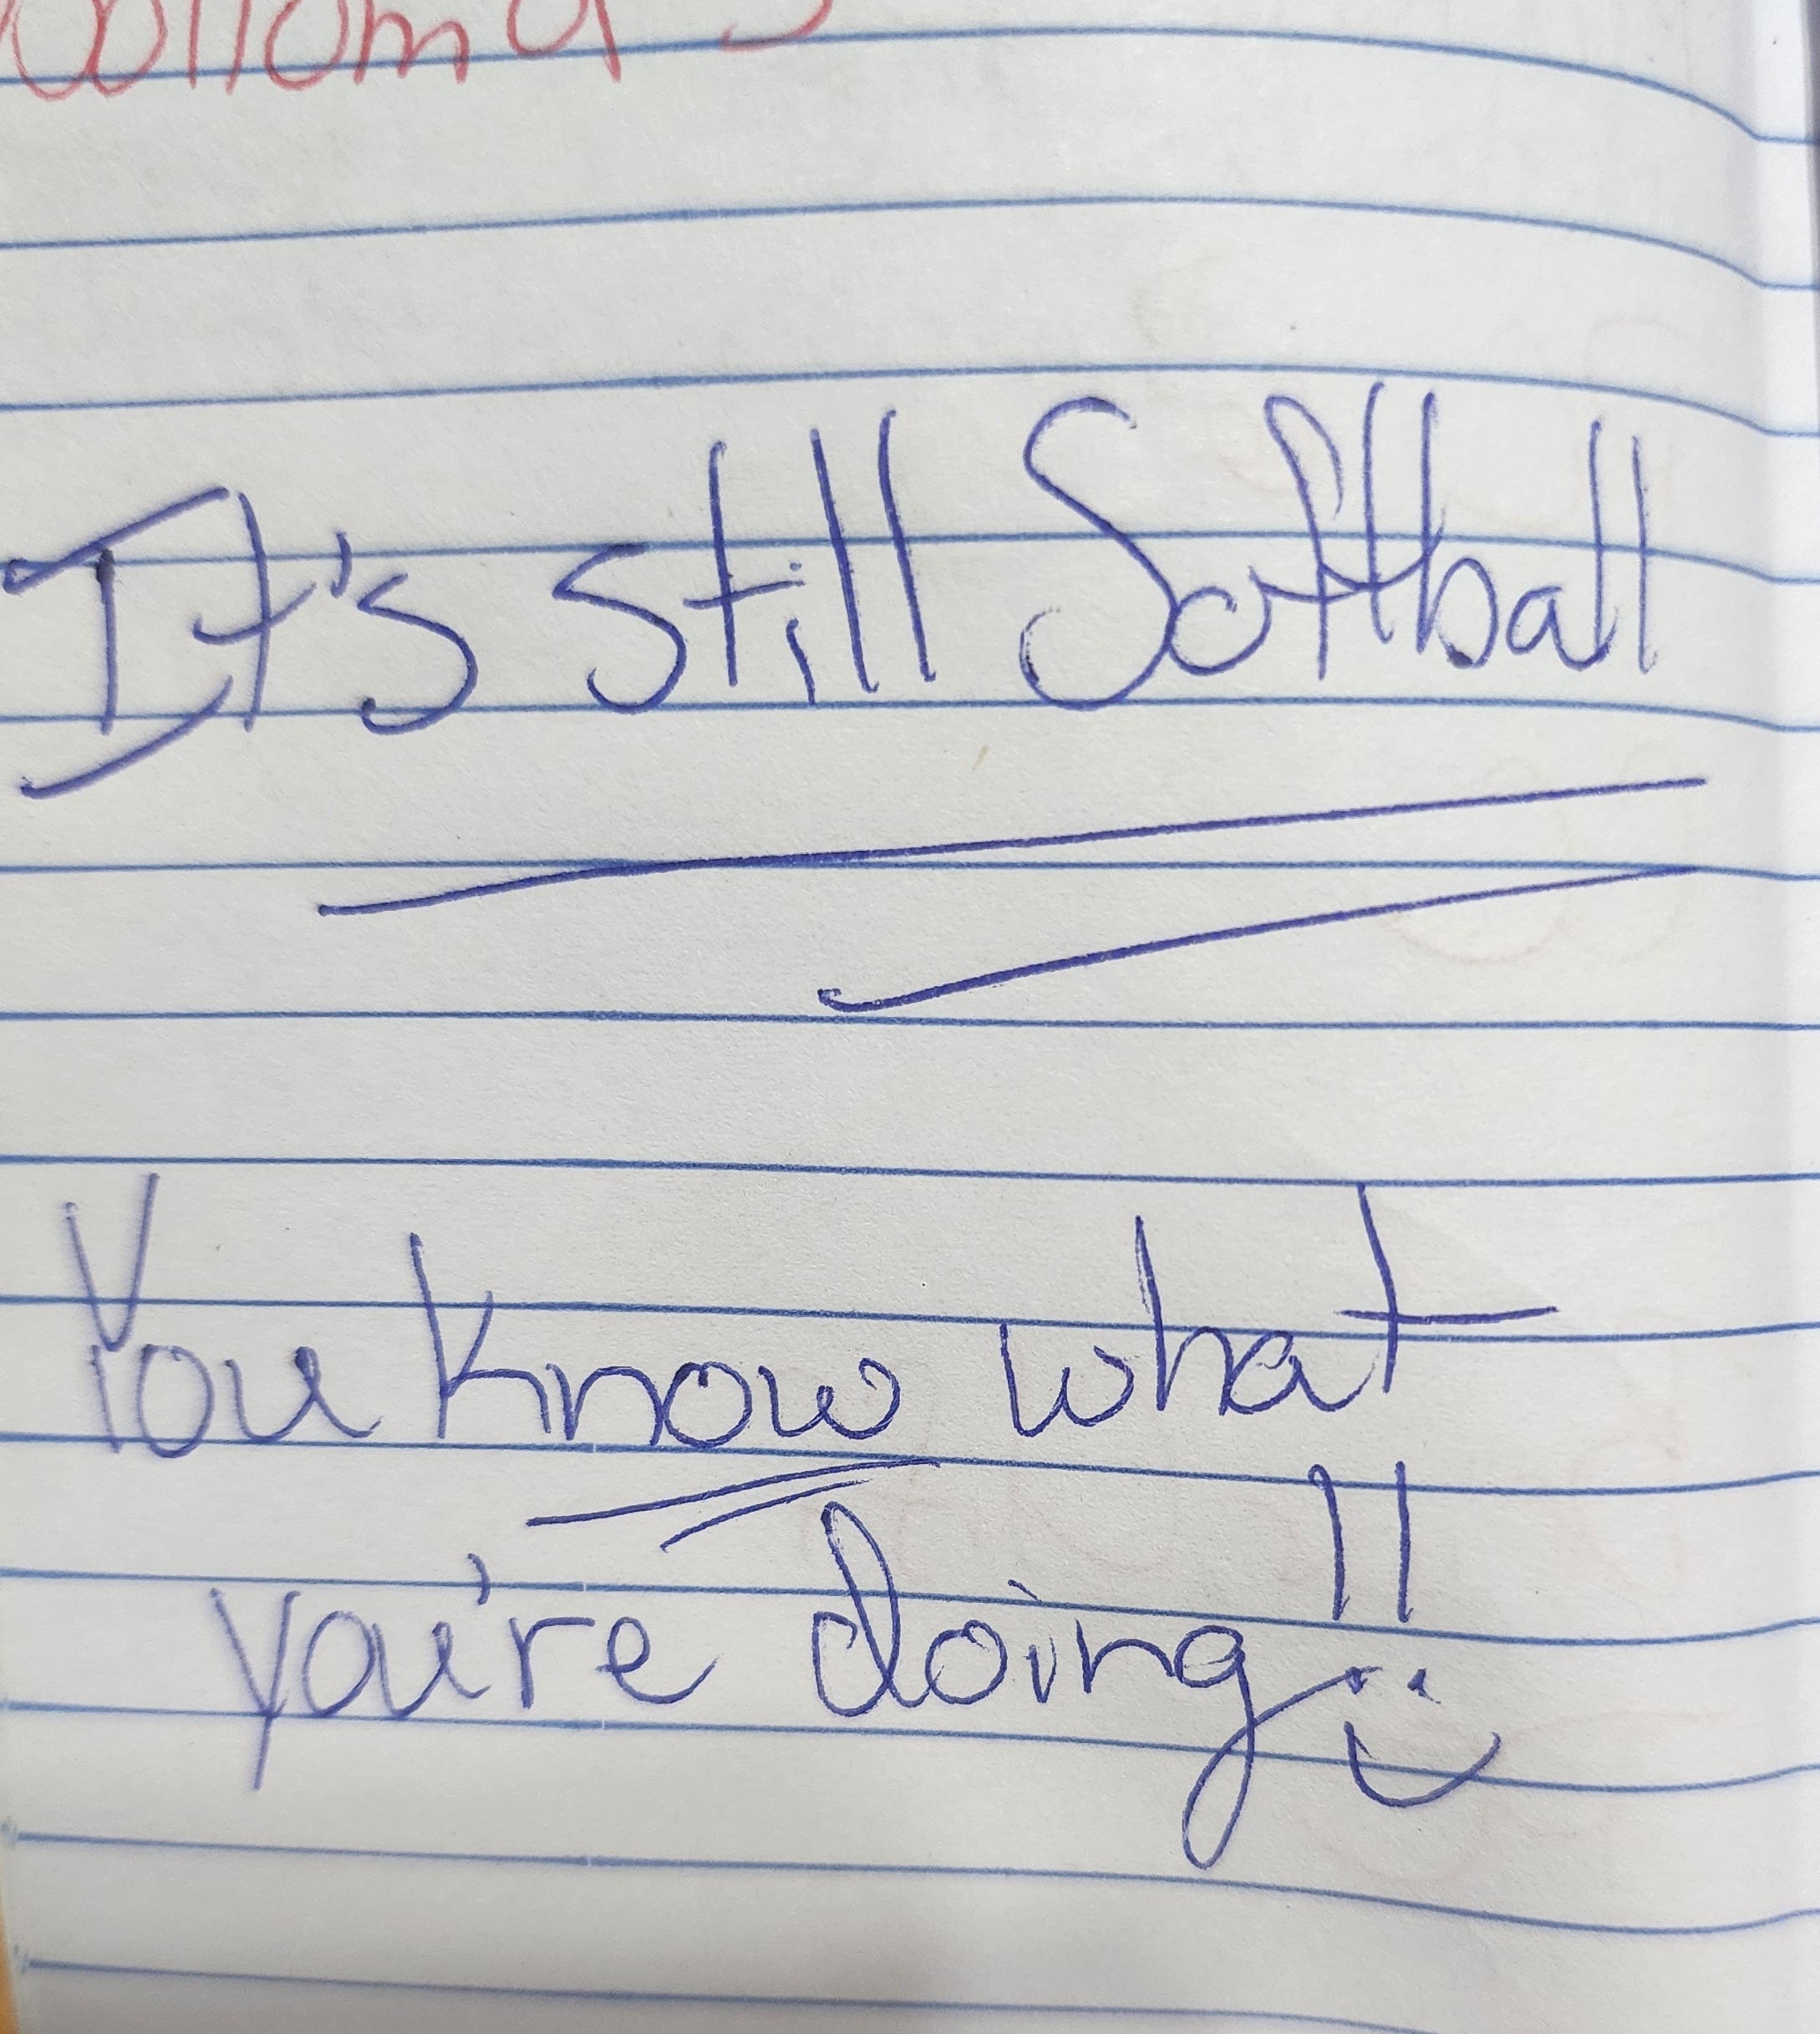 It's still Softball
You know what
you're doing!!